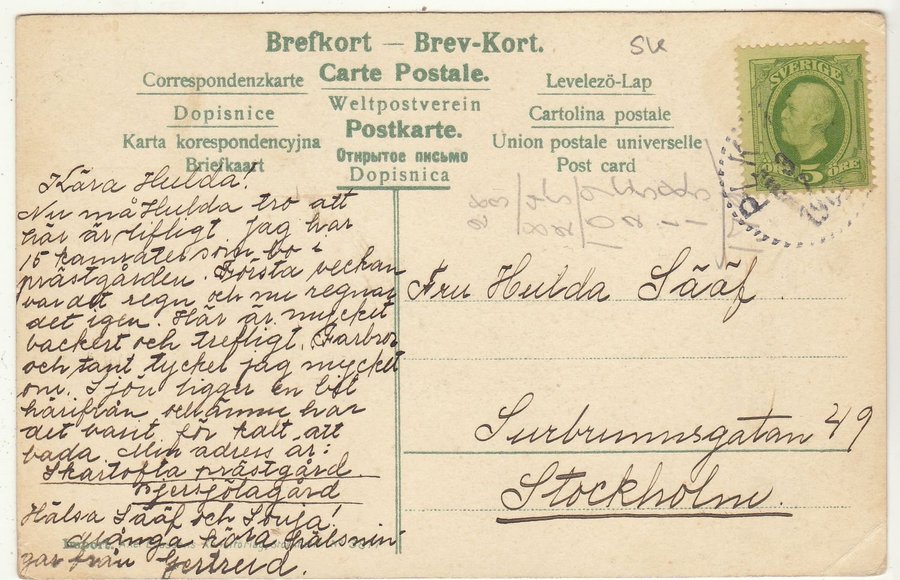 Brefkort — Brev-Kort.
SK
Correspondenzkarte Carte Postale. Levelező-Lap
Dopisnice Weltpostverein Cartolina postale
Karta korespondencyjna Postkarte. Union postale universelle
Briefkaart Открытое письмо Post card
Dopisnica
SVERIGE
5 ÖRE
Kära Hulda!
Nu må Hulda tro att
här är lifligt. Jag har
15 kamrater som bo i
prästgården. Första veckan
var det regn och nu regnar
det igen. Här är mycket
vackert och trefligt. Farbror
och tant tycker jag mycket
om. Sjön ligger en bit
härifrån och ännu har
det varit för kalt att
bada. Min adress är:
Skartofta prästgård
Bjersjölagård
Hälsa Sääf och Sonja!
Många kära hälsnin
gar från Gertrud.
Import.
Fru Hulda Sääf
Surbrunnsgatan 49
Stockholm.